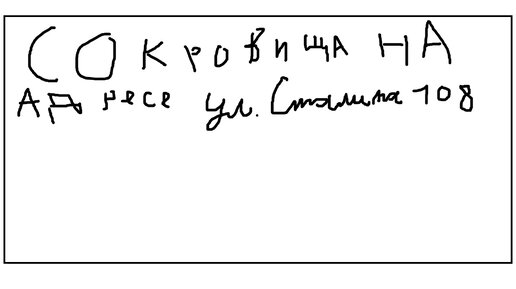 СОКРОВИЩА НА
АДресе ул. Сталина 108